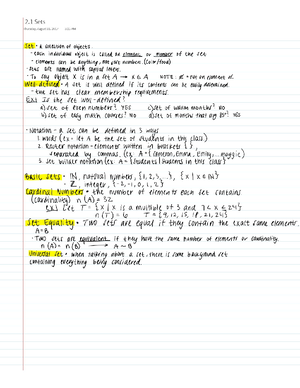 2.1 Sets
Set - a collection of objects.
· each individual object is called an element or member of the set
· elements can be anything, not just numbers (coin/food)
· sets are named with capital letters.
· To say object x is in a set A → x ∈ A NOTE: ∉ - not an element of.
Well-defined - A set is well defined if its contents can be clearly determined.
· the set has clear membership requirements
Ex: Is the set well-defined?
a) set of even numbers? YES c) set of warm months? NO
b) set of easy math courses? NO d) set of months that end "BR"? YES
· Notation - A set can be defined in 3 ways
1. words (ex - let A be the set of students in this class)
2. Roster notation - elements written in brackets { }
separated by commas. (ex. A = {Cameron, Emma, Emily, Maggie})
3. Set builder notation (ex. A = {students | students in this class})
Basic Sets - ℕ, natural numbers, {1, 2, 3, ...}, {x | x ∈ ℕ}
ℤ, integer, {-2, -1, 0, 1, 2}
Cardinal Numbers - the number of elements each set contains
(cardinality) n(A) = 32
ex: Let T = {x | x is a multiple of 3 and 7 < x < 24}
n(T) = 6 T = {9, 12, 15, 18, 21, 24}
Set Equality - Two sets are equal if they contain the exact same elements.
A = B
· Two sets are equivalent if they have the same number of elements or cardinality.
n(A) = n(B) → A ~ B
Universal set - when talking about a set, there is some background set
containing everything being considered.